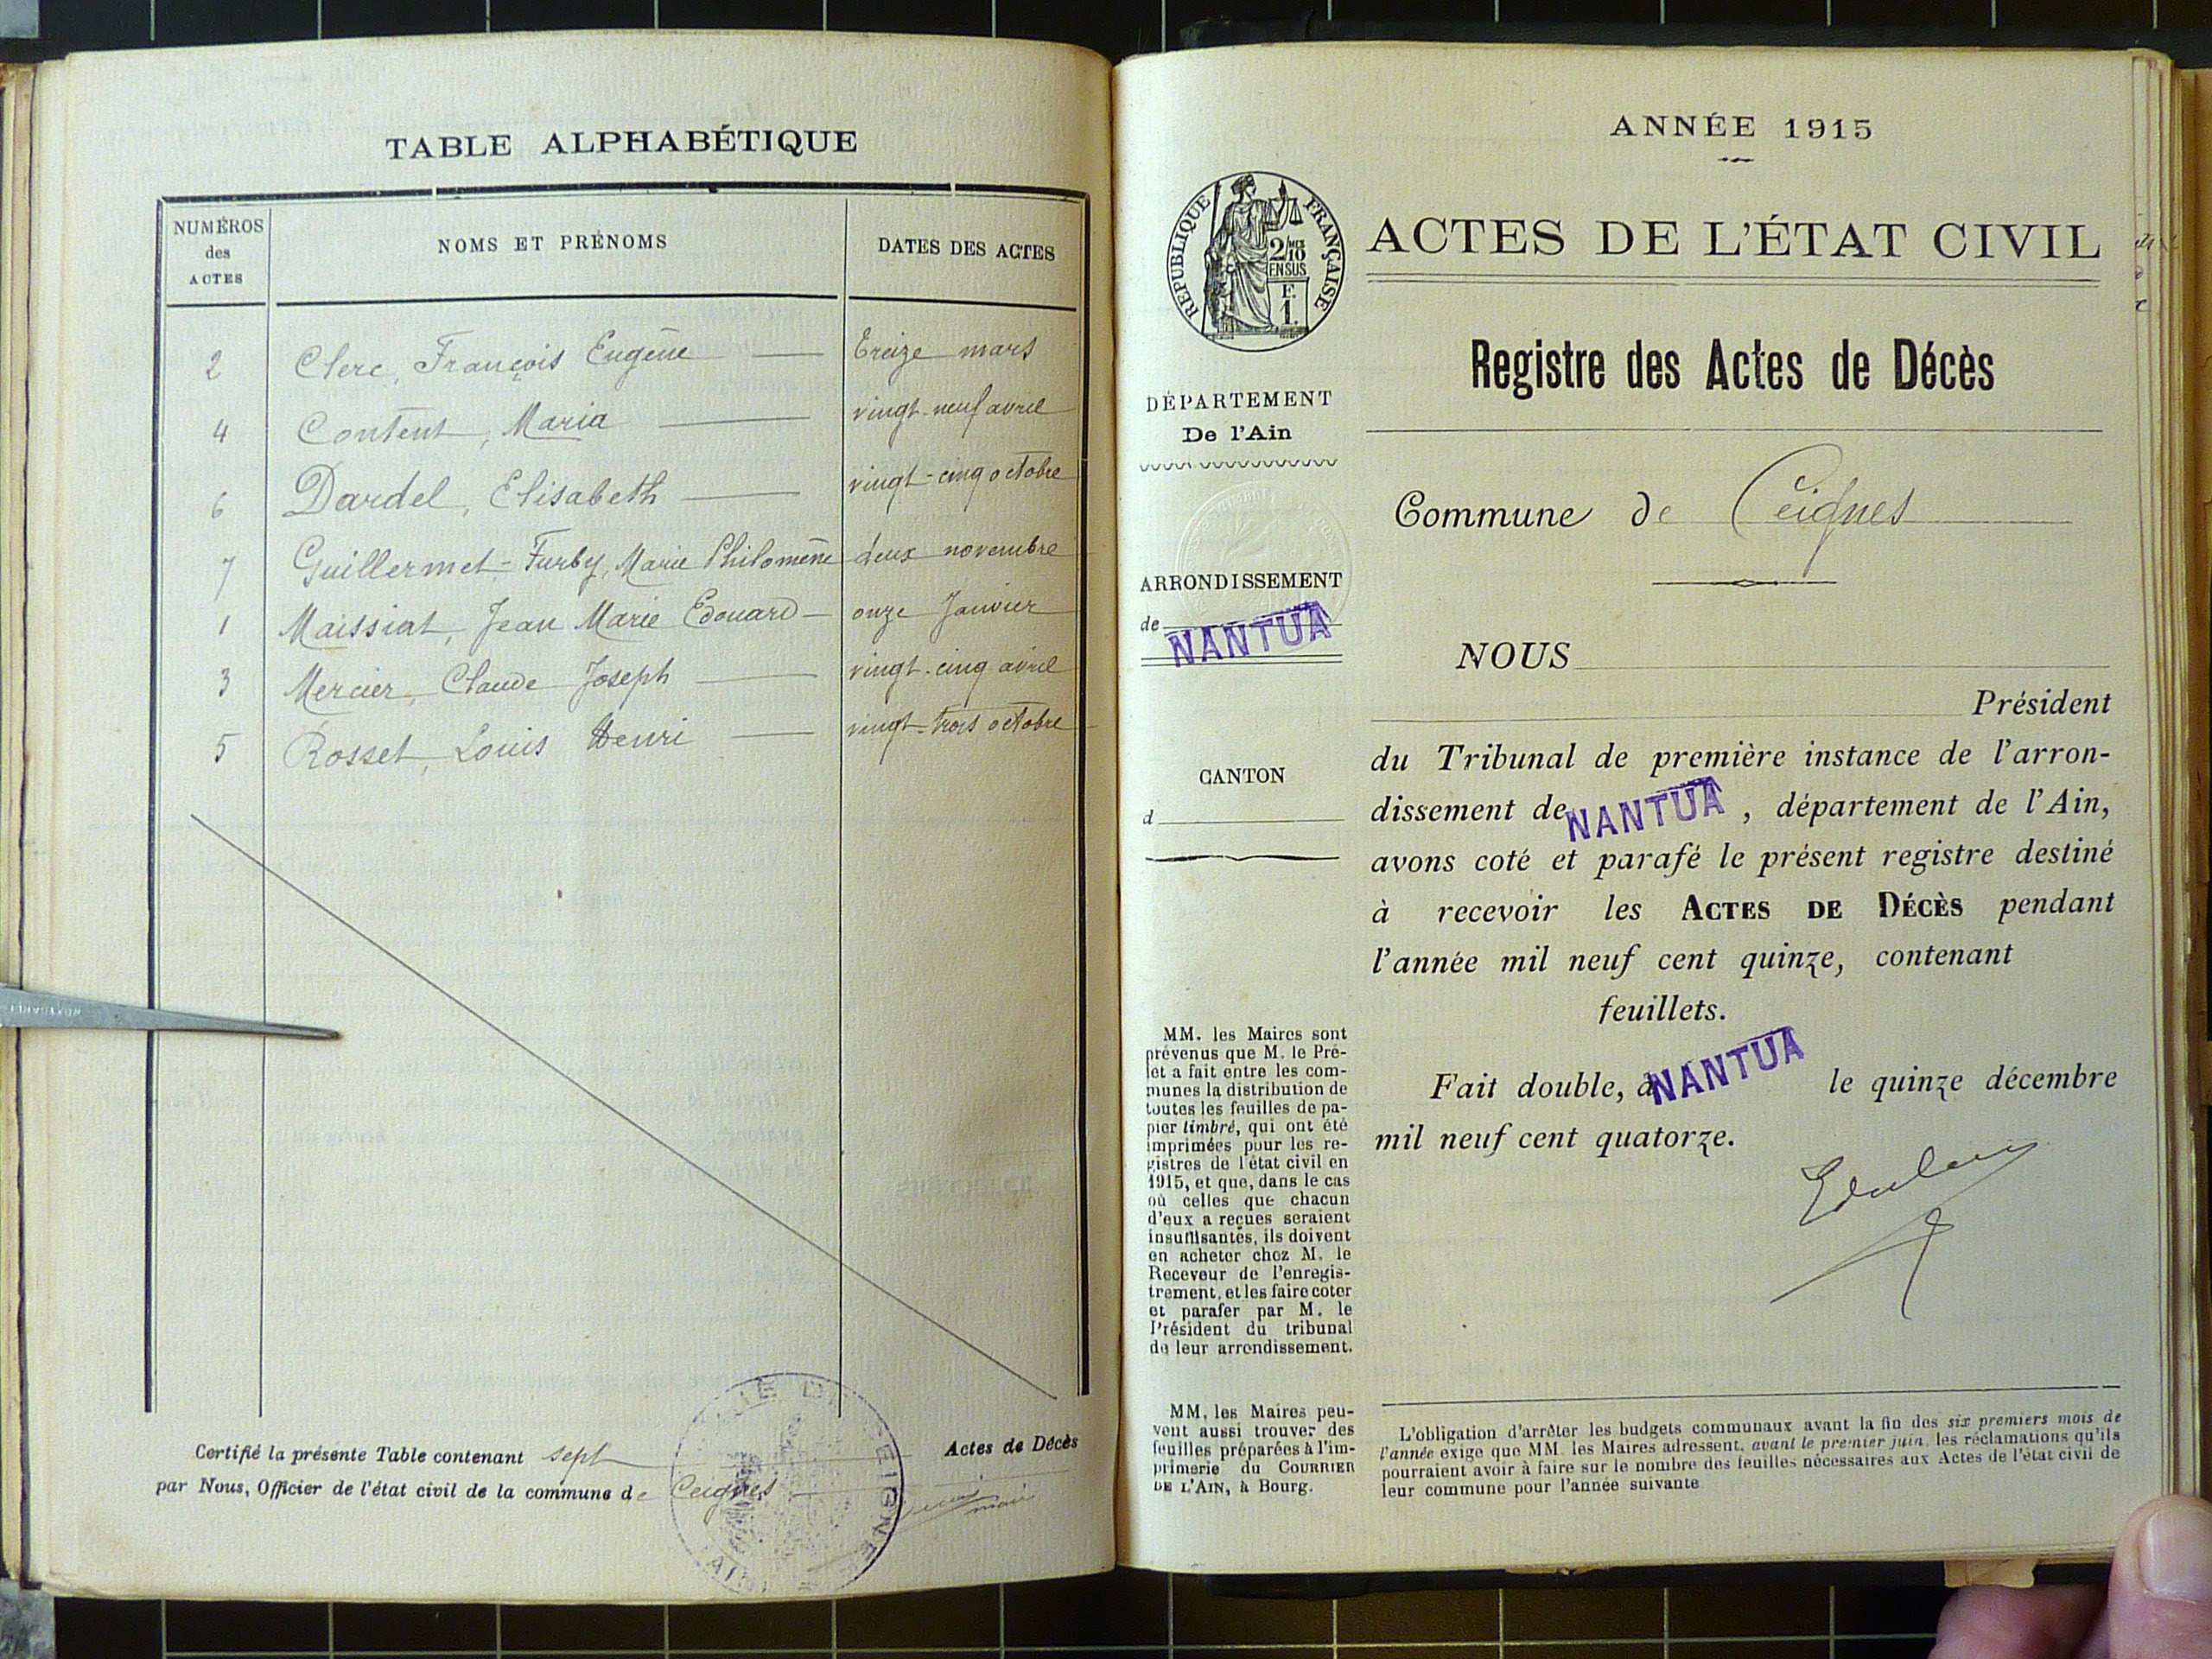 TABLE ALPHABÉTIQUE
NUMÉROS
des
ACTES
NOMS ET PRÉNOMS
DATES DES ACTES
2 Clerc, François Eugène treize mars
4 Content, Maria vingt-neuf avril
6 Dardel, Elisabeth vingt-cinq octobre
7 Guillermet-Furby, Marie Philomène deux novembre
1 Maissiat, Jean Marie Edouard onze Janvier
3 Mercier, Claude Joseph vingt-cinq avril
5 Rosset, Louis Henri vingt-trois octobre
Certifié la présente Table contenant sept Actes de Décès
par Nous, Officier de l'état civil de la commune de Ceignes
maire
ANNÉE 1915
RÉPUBLIQUE FRANÇAISE
2/10
EN SUS
F.
1.
ACTES DE L'ÉTAT CIVIL
Registre des Actes de Décès
DÉPARTEMENT
De l'Ain
Commune de Ceignes
ARRONDISSEMENT
de NANTUA
CANTON
d
NOUS
Président
du Tribunal de première instance de l'arron-
dissement de NANTUA, département de l'Ain,
avons coté et parafé le présent registre destiné
à recevoir les ACTES DE DÉCÈS pendant
l'année mil neuf cent quinze, contenant
feuillets.
Fait double, à NANTUA le quinze décembre
mil neuf cent quatorze.
MM. les Maires sont
prévenus que M. le Pré-
fet a fait entre les com-
munes la distribution de
toutes les feuilles de pa-
pier timbré, qui ont été
imprimées pour les re-
gistres de l'état civil en
1915, et que, dans le cas
où celles que chacun
d'eux a reçues seraient
insuffisantes, ils doivent
en acheter chez M. le
Receveur de l'enregis-
trement, et les faire coter
et parafer par M. le
Président du tribunal
de leur arrondissement.
MM. les Maires peu-
vent aussi trouver des
feuilles préparées à l'im-
primerie du COURRIER
DE L'AIN, à Bourg.
L'obligation d'arrêter les budgets communaux avant la fin des six premiers mois de
l'année exige que MM. les Maires adressent, avant le premier juin, les réclamations qu'ils
pourraient avoir à faire sur le nombre des feuilles nécessaires aux Actes de l'état civil de
leur commune pour l'année suivante